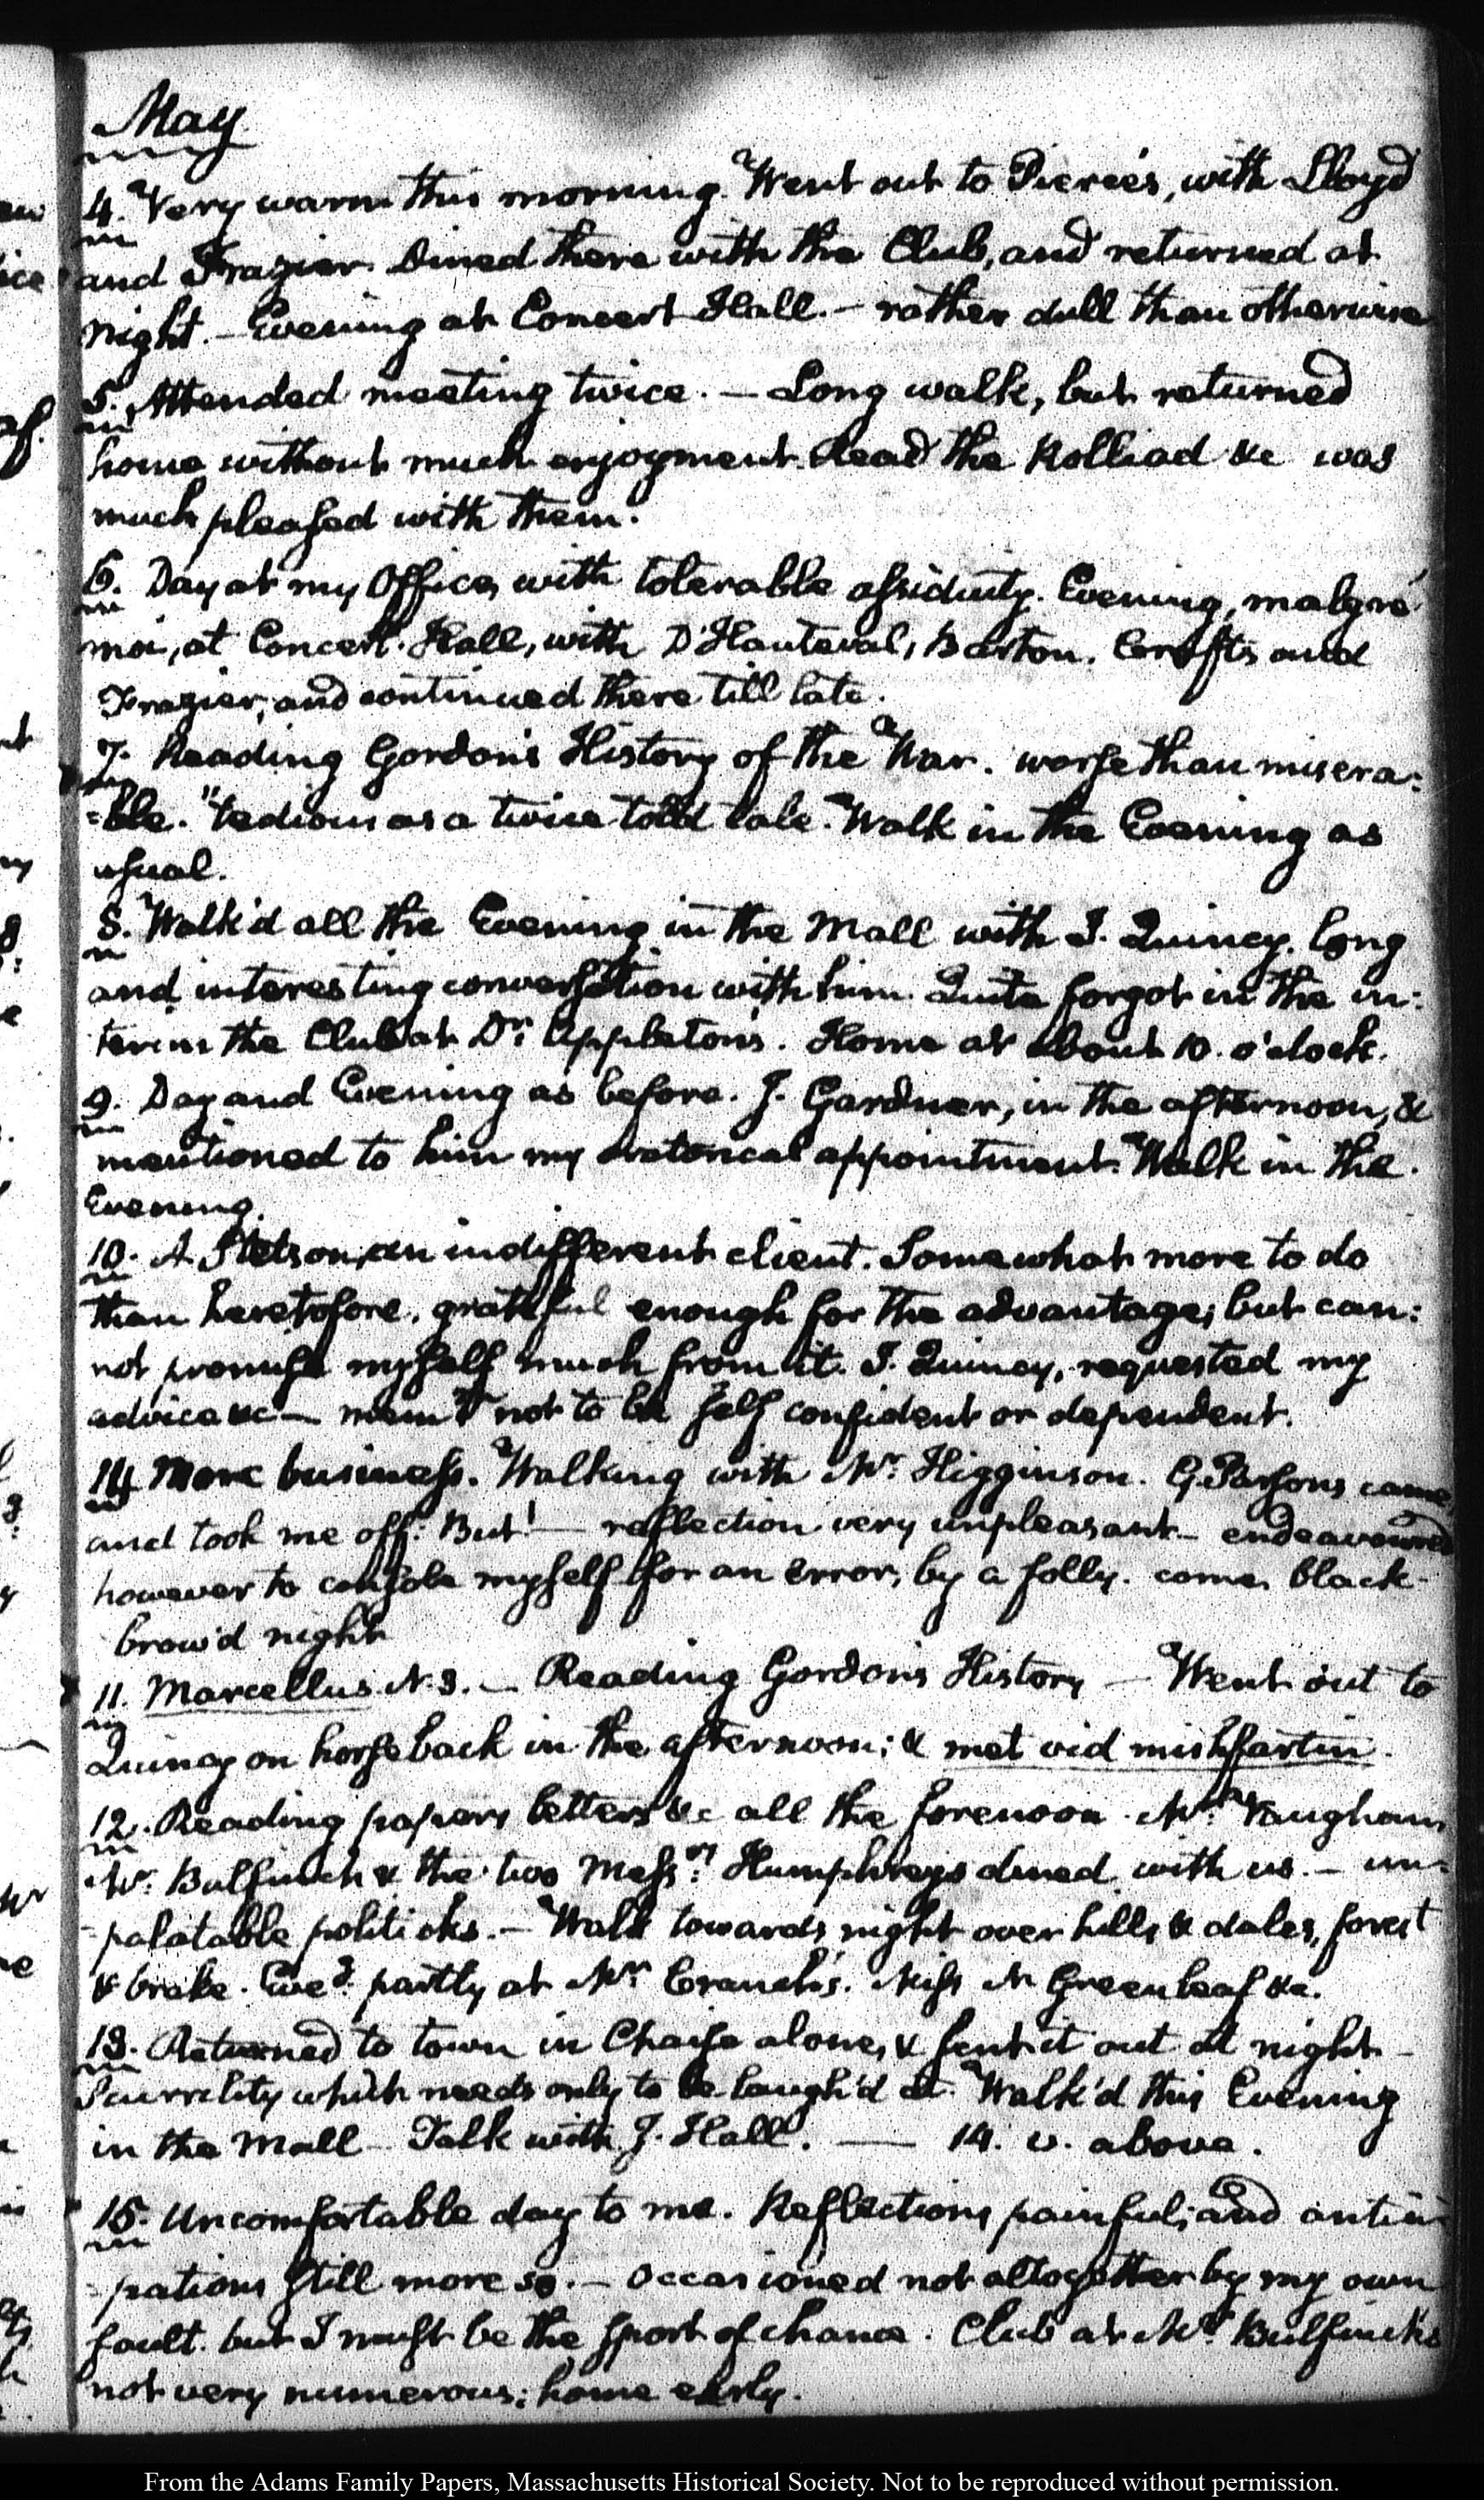 May
4. Very warm this morning. Went out to Pierce's, with Lloyd
and Frazier. Dined there with the Club, and returned at
night. — Evening at Concert Hall. — rather dull than otherwise
5. Attended meeting twice. — Long walk, but returned
home without much enjoyment. Read the Rolliad &c was
much pleased with them.
6. Day at my Office, with tolerable assiduity. Evening, malgré
moi, at Concert-Hall, with D'Hauteval, Barton, Crafts and
Frazier, and continued there till late.
7. Reading Gordon's History of the War. worse than misera:
=ble. "tedious as a twice told tale. Walk in the Evening as
usual.
8. Walk'd all the Evening in the Mall with J. Quincy. long
and interesting conversation with him. Quite forgot in the in:
terim the Club at Dr. Appleton's. Home at about 10. o'clock.
9. Day and Evening as before. J. Gardner, in the afternoon, &
mentioned to him my oratorical appointment. Walk in the
Evening.
10. A Stetson, an indifferent client. Somewhat more to do
than heretofore. grateful enough for the advantage; but can:
not promise myself much from it. J. Quincy, requested my
advice &c — mem: not to be self confident or dependent.
14 More business. Walking with Mr. Higginson. G. Parsons came
and took me off. But! — reflection very unpleasant — endeavoured
however to console myself for an error, by a folly. come, black-
brow'd night
11. Marcellus N. 3. — Reading Gordon's History — Went out to
Quincy on horseback in the afternoon; & met vid mishfartin.
12. Reading papers letters &c all the forenoon. Mr. Vaughan
Mr. Bulfinch & the two Messrs. Humphreys dined with us. — un=
=palatable politicks. — Walk towards night over hills & dales, forest
& brake. Eveg. partly at Mr. Cranch's. Miss N Greenleaf &c.
13. Returned to town in Chaise alone, & sent it out at night —
Scurrility which needs only to be laugh'd at. Walk'd this Evening
in the Mall — Talk with J. Hall. — 14. v. above.
15. Uncomfortable day to me. Reflections painful; and antici
=pations still more so. — Occasioned not altogether by my own
fault. but I must be the sport of chance. Club at Mr. Bulfinch's
not very numerous; home early.
From the Adams Family Papers, Massachusetts Historical Society. Not to be reproduced without permission.